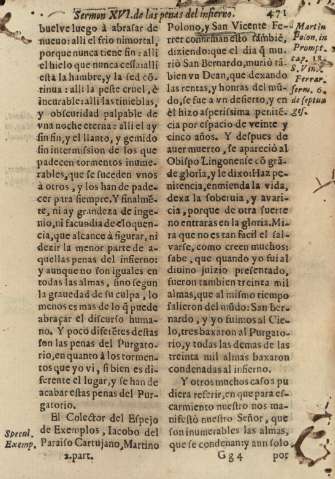 Sermon XVI. de las penas del infierno. 471
buelve luego à abrasar de
nuevo: alli el frio inmortal,
porque nunca tiene fin: alli
el hielo que nunca cessa: alli
està la hambre, y la sed cõ-
tinua: alli la peste cruel, è
incurable: alli las tinieblas,
y obscuridad palpable de
vna noche eterna: alli el ay
sin fin, y el llanto, y gemido
sin intermission de los que
padecen tormentos inume-
rables, que se suceden vnos
à otros, y los han de pade-
cer para siempre. Y finalmẽ-
te, ni ay grandeza de inge-
nio, ni facundia de eloquen-
cia, que alcance à figurar, ni
dezir la menor parte de a-
quellas penas del infierno:
y aunque no son iguales en
todas las almas, sino segun
la gravedad de su culpa, lo
menos es mas de lo q̃ puede
abraçar el discurso huma-
no. Y poco diferẽtes destas
son las penas del Purgato-
rio, en quanto à los tormen-
tos que yo vi, si bien es di-
ferente el lugar, y se han de
acabar estas penas del Pur-
gatorio.
El Colector del Espejo
de Exemplos, Iacobo del
Paraiso Cartujano, Martino
Specul.
Exemp.
2. part.
Polono, y San Vicente Fe-
rrer confirman esto tambiẽ,
diziendo: que el dia q̃ mu-
riò San Bernardo, muriò tã-
bien vn Dean, que dexando
las rentas, y honras del mũ-
do, se fue a vn desierto, y en
èl hizo asperissima peniten-
cia por espacio de veinte y
cinco años. Y despues de
aver muerto, se apareciò al
Obispo Lingonense cõ grã-
de gloria, y le dixo: Haz pe-
nitencia, enmienda la vida,
dexa la sobervia, y avari-
cia, porque de otra suerte
no entraras en la gloria. Mi-
ra que no es tan facil el sal-
varse, como creen muchos:
sabe, que quando yo fui al
divino juizio presentado,
fueron tambien treinta mil
almas, que al mismo tiempo
salieron del mũdo: San Ber-
nardo, y yo fuimos al Cie-
lo, tres baxaron al Purgato-
rio, y todas las demas de las
treinta mil almas baxaron
condenadas al infierno.
Y otros muchos casos pu
diera referir, en que para es-
carmiento nuestro nos ma-
nifestò nuestro Señor, que
son inumerables las almas,
que se condenan: y aun solo
Gg 4
por
Martin
Polon. in
Prompt.
cap.
S. Vinc.
Ferrar.
serm. 6.
de septua
ges.